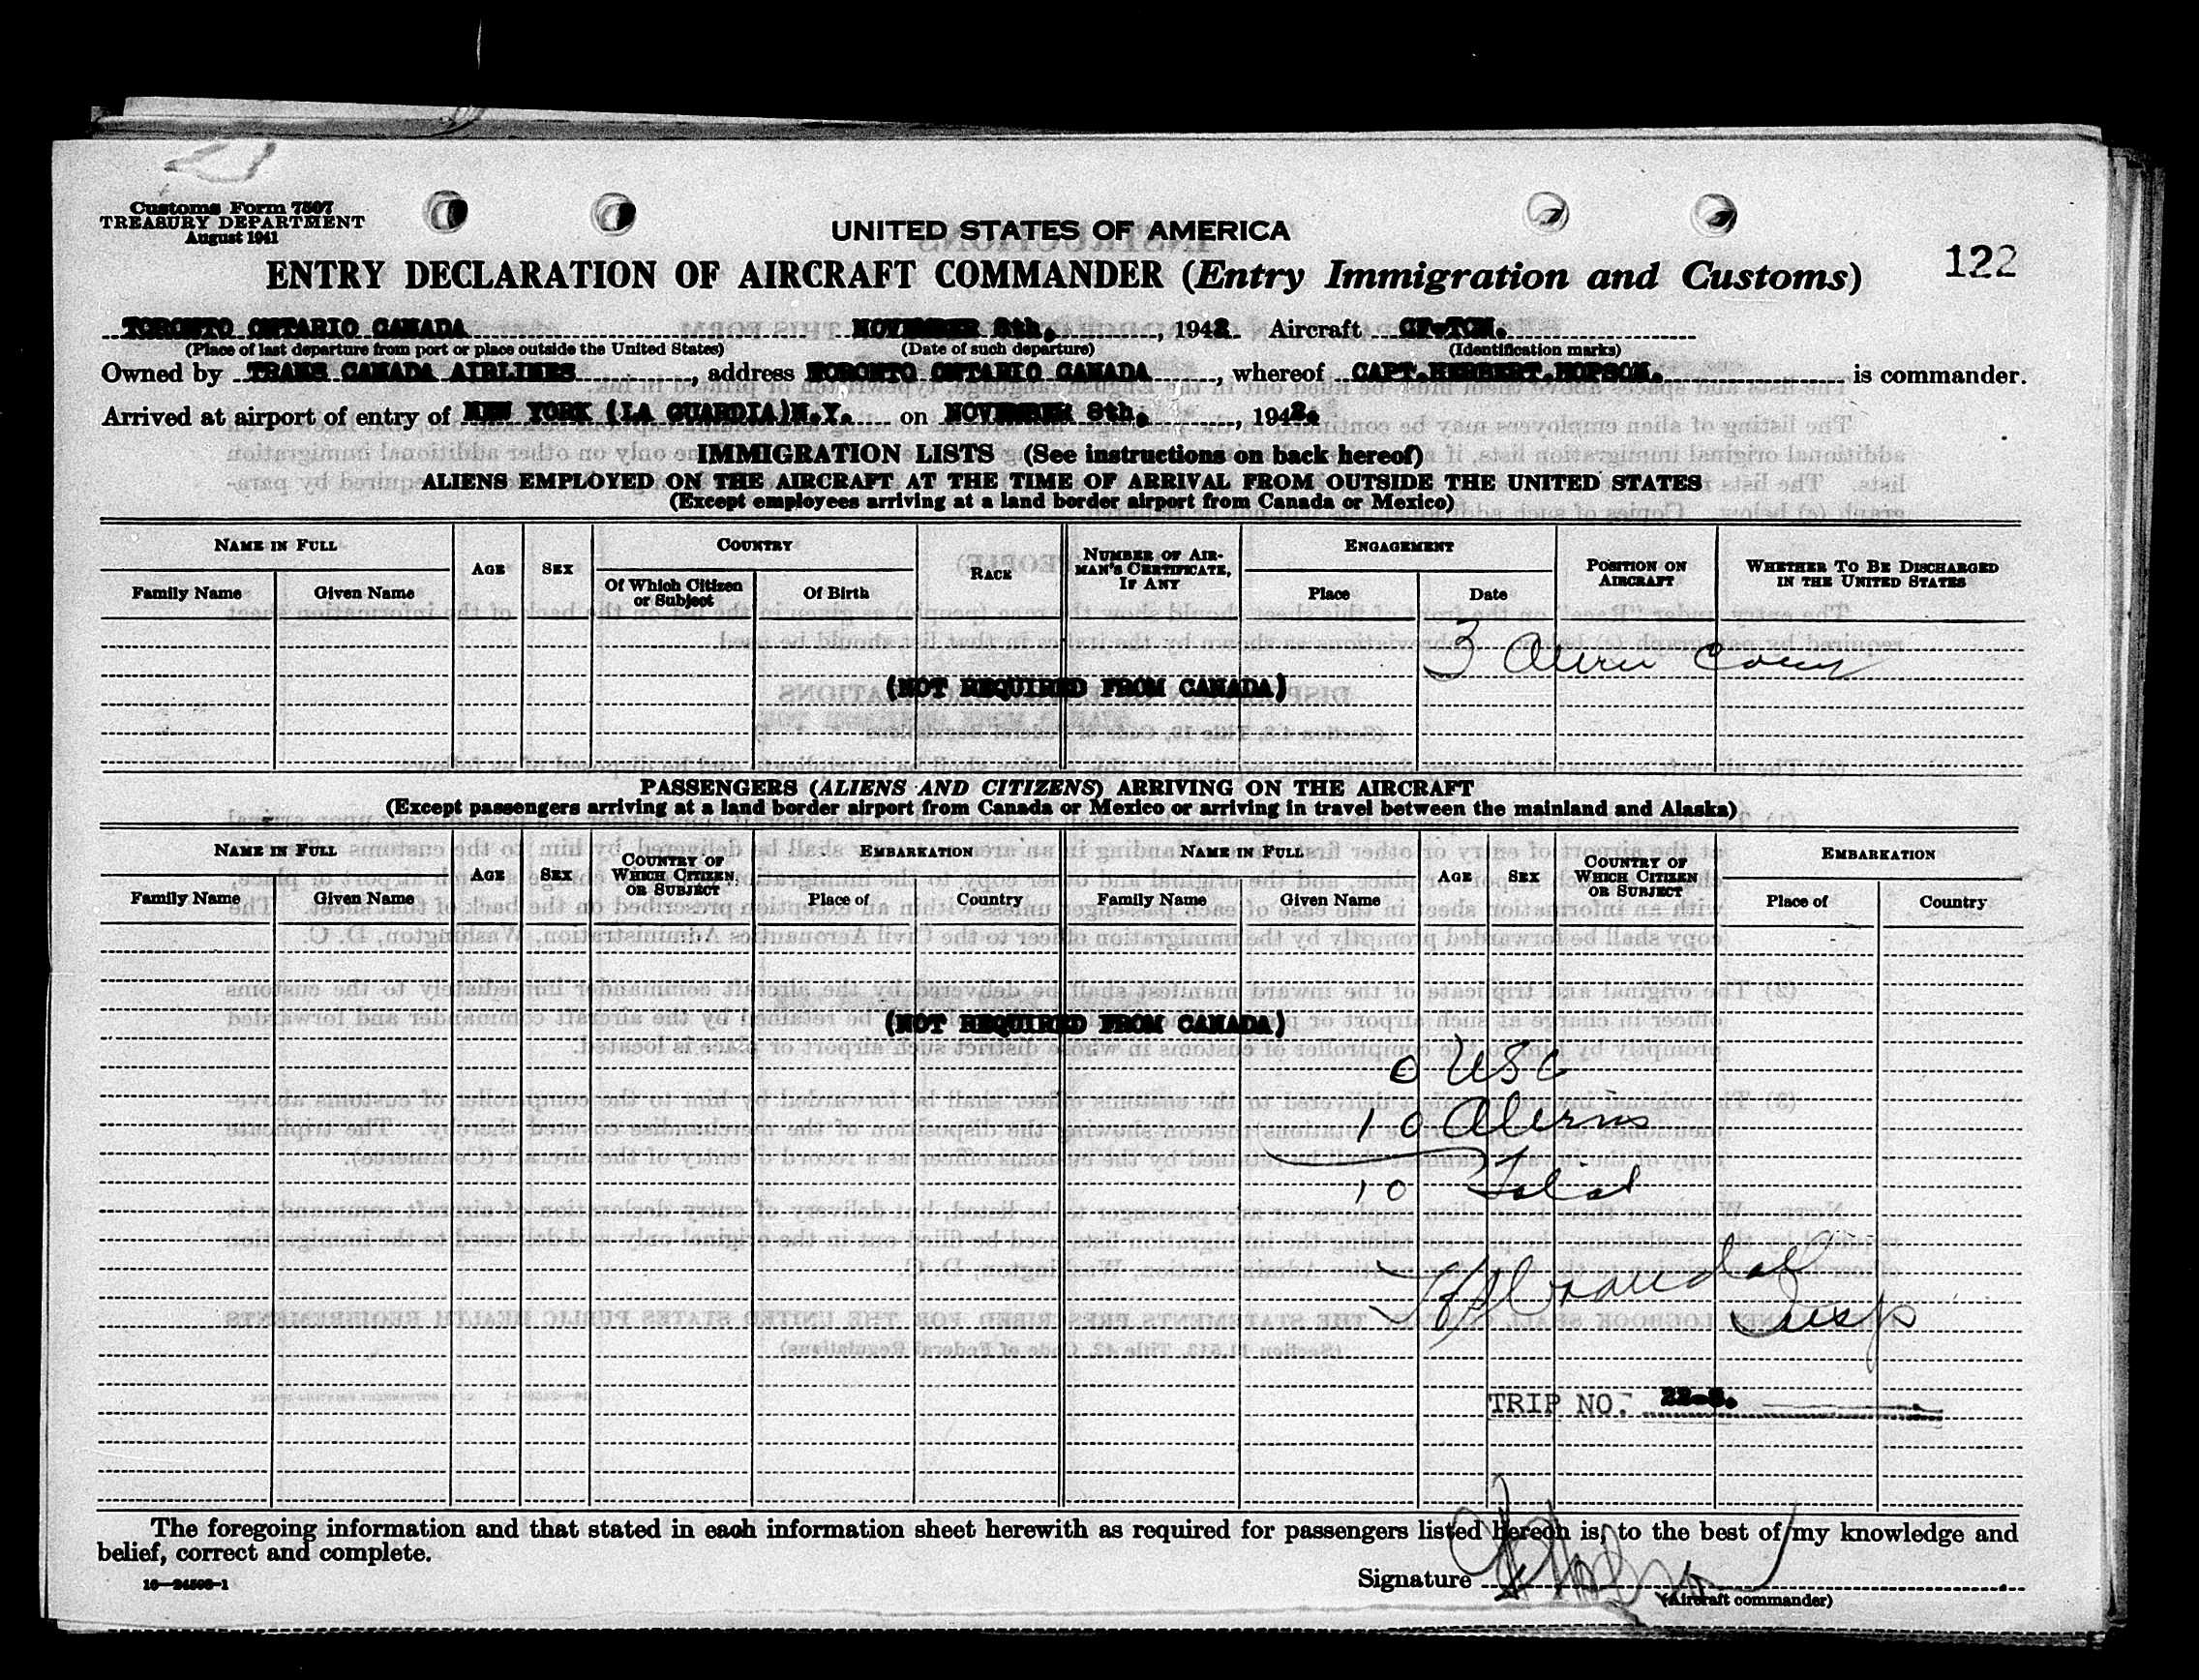 Customs Form 7507
TREASURY DEPARTMENT
August 1941
UNITED STATES OF AMERICA
122
ENTRY DECLARATION OF AIRCRAFT COMMANDER (Entry Immigration and Customs)
TORONTO ONTARIO CANADA NOVEMBER 8th, , 1942 Aircraft CF-TCM.
(Place of last departure from port or place outside the United States) (Date of such departure) (Identification marks)
Owned by TRANS CANADA AIRLINES , address TORONTO ONTARIO CANADA , whereof CAPT.HERBERT.HOPSON. is commander.
Arrived at airport of entry of NEW YORK (LA GUARDIA)N.Y. on NOVEMBER 8th. , 1942.
IMMIGRATION LISTS (See instructions on back hereof)
ALIENS EMPLOYED ON THE AIRCRAFT AT THE TIME OF ARRIVAL FROM OUTSIDE THE UNITED STATES
(Except employees arriving at a land border airport from Canada or Mexico)
NAME IN FULL AGE SEX COUNTRY RACE NUMBER OF AIRMAN'S CERTIFICATE, IF ANY ENGAGEMENT POSITION ON AIRCRAFT WHETHER TO BE DISCHARGED IN THE UNITED STATES
Family Name Given Name Of Which Citizen or Subject Of Birth Place Date
3 Alien
(NOT REQUIRED FROM CANADA)
PASSENGERS (ALIENS AND CITIZENS) ARRIVING ON THE AIRCRAFT
(Except passengers arriving at a land border airport from Canada or Mexico or arriving in travel between the mainland and Alaska)
NAME IN FULL AGE SEX COUNTRY OF WHICH CITIZEN OR SUBJECT EMBARKATION NAME IN FULL AGE SEX COUNTRY OF WHICH CITIZEN OR SUBJECT EMBARKATION
Family Name Given Name Place of Country Family Name Given Name Place of Country
(NOT REQUIRED FROM CANADA)
0 USC
10 Aliens
10 Total
Insp
TRIP NO. 22-8.
The foregoing information and that stated in each information sheet herewith as required for passengers listed hereon is, to the best of my knowledge and
belief, correct and complete.
16—24508-1
Signature
(Aircraft commander)